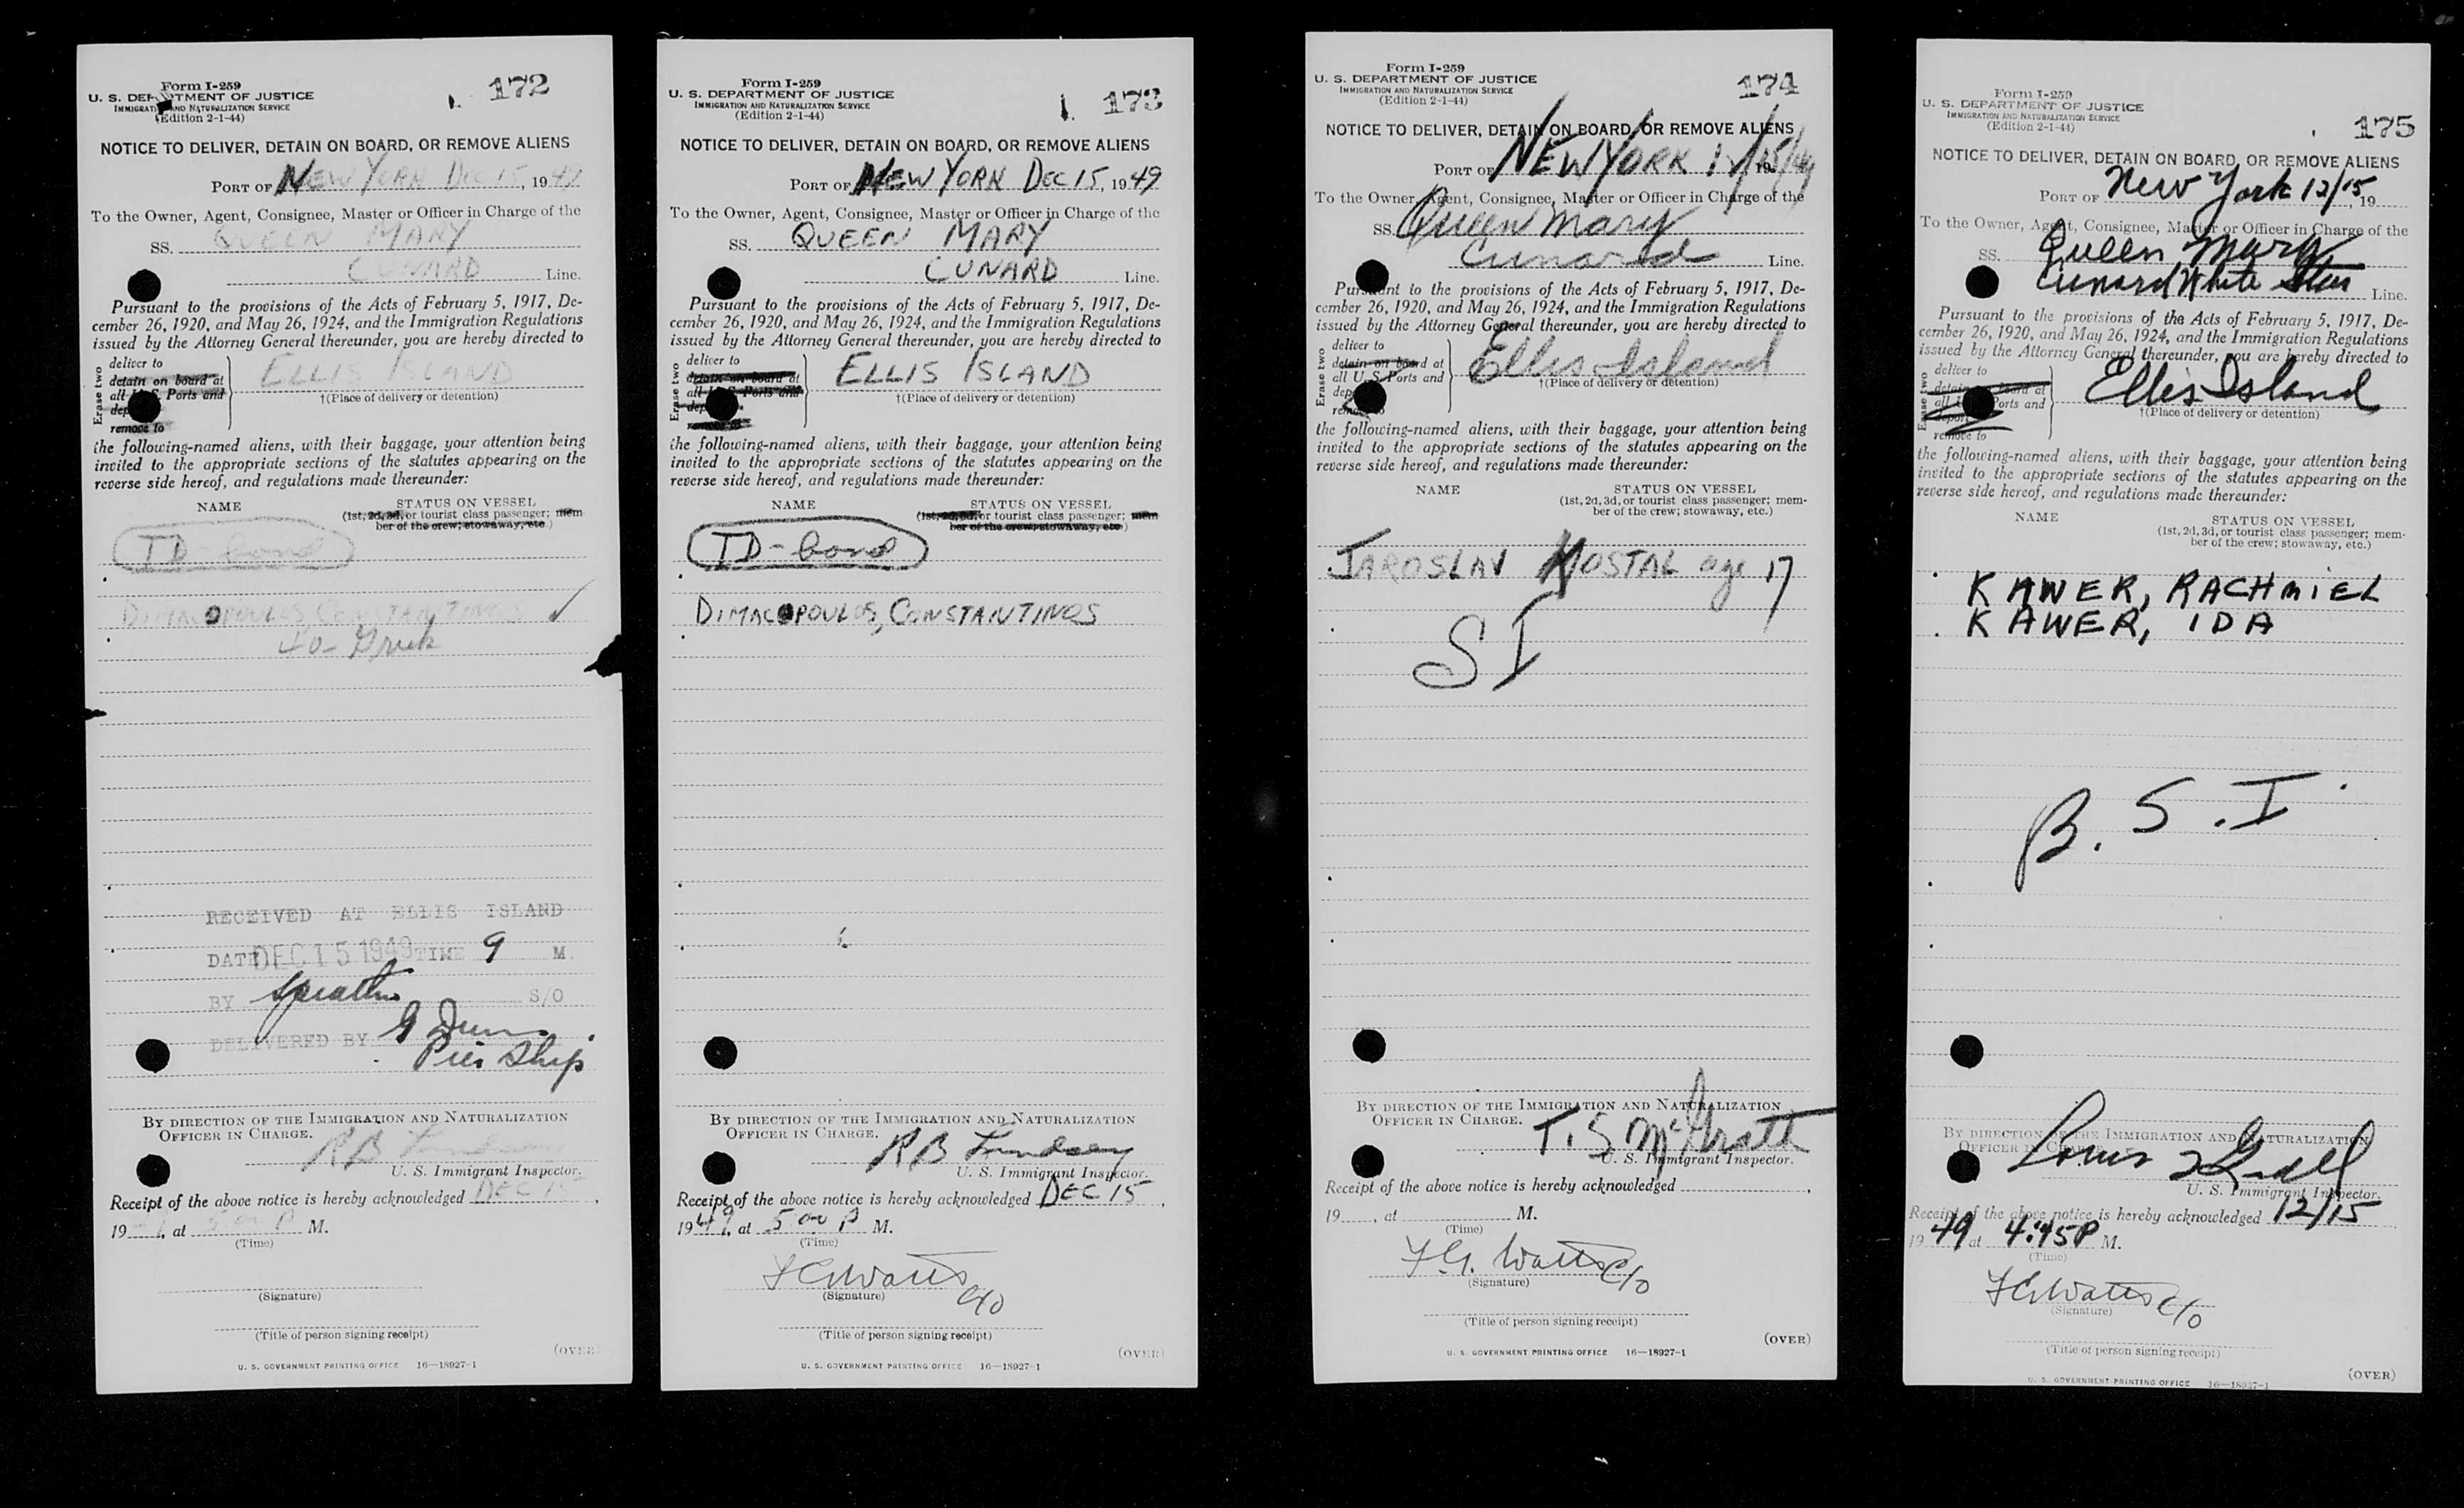 Form I-259
U. S. DEPARTMENT OF JUSTICE
IMMIGRATION AND NATURALIZATION SERVICE
(Edition 2-1-44)
172
NOTICE TO DELIVER, DETAIN ON BOARD, OR REMOVE ALIENS
PORT OF NEW YORK DEC 15, 1949
To the Owner, Agent, Consignee, Master or Officer in Charge of the
SS. QUEEN MARY
CUNARD Line.
Pursuant to the provisions of the Acts of February 5, 1917, De-
cember 26, 1920, and May 26, 1924, and the Immigration Regulations
issued by the Attorney General thereunder, you are hereby directed to
Erase two
deliver to
detain on board at
all U. S. Ports and
deport
remove to
ELLIS ISLAND
†(Place of delivery or detention)
the following-named aliens, with their baggage, your attention being
invited to the appropriate sections of the statutes appearing on the
reverse side hereof, and regulations made thereunder:
NAME STATUS ON VESSEL
(1st, 2d, 3d, or tourist class passenger; mem-
ber of the crew; stowaway, etc.)
TD-bond
DIMACOPOULOS, CONSTANTINOS ✓
40- Greek
RECEIVED AT ELLIS ISLAND
DATE DEC 15 1949 TIME 9 M.
BY S/O
DELIVERED BY G Dunn
Pier Ship
BY DIRECTION OF THE IMMIGRATION AND NATURALIZATION
OFFICER IN CHARGE.
R B Lindsey
U. S. Immigrant Inspector.
Receipt of the above notice is hereby acknowledged DEC 15,
19, at 5 00 P M.
(Time)
(Signature)
(Title of person signing receipt)
(OVER)
U. S. GOVERNMENT PRINTING OFFICE 16—18927-1
Form I-259
U. S. DEPARTMENT OF JUSTICE
IMMIGRATION AND NATURALIZATION SERVICE
(Edition 2-1-44)
173
NOTICE TO DELIVER, DETAIN ON BOARD, OR REMOVE ALIENS
PORT OF NEW YORK DEC 15, 1949
To the Owner, Agent, Consignee, Master or Officer in Charge of the
SS. QUEEN MARY
CUNARD Line.
Pursuant to the provisions of the Acts of February 5, 1917, De-
cember 26, 1920, and May 26, 1924, and the Immigration Regulations
issued by the Attorney General thereunder, you are hereby directed to
Erase two
deliver to
detain on board at
all U. S. Ports and
deport
remove to
ELLIS ISLAND
†(Place of delivery or detention)
the following-named aliens, with their baggage, your attention being
invited to the appropriate sections of the statutes appearing on the
reverse side hereof, and regulations made thereunder:
NAME STATUS ON VESSEL
(1st, 2d, 3d, or tourist class passenger; mem-
ber of the crew; stowaway, etc.)
TD-bond
DIMACOPOULOS, CONSTANTINOS
BY DIRECTION OF THE IMMIGRATION AND NATURALIZATION
OFFICER IN CHARGE.
R B Lindsey
U. S. Immigrant Inspector.
Receipt of the above notice is hereby acknowledged DEC 15,
1949, at 5 00 P M.
(Time)
F G Watts
(Signature) C/O
(Title of person signing receipt)
(OVER)
U. S. GOVERNMENT PRINTING OFFICE 16—18927-1
Form I-259
U. S. DEPARTMENT OF JUSTICE
IMMIGRATION AND NATURALIZATION SERVICE
(Edition 2-1-44)
174
NOTICE TO DELIVER, DETAIN ON BOARD, OR REMOVE ALIENS
PORT OF NEW YORK 12/15/49 19
To the Owner, Agent, Consignee, Master or Officer in Charge of the
SS. Queen Mary
Cunard Line.
Pursuant to the provisions of the Acts of February 5, 1917, De-
cember 26, 1920, and May 26, 1924, and the Immigration Regulations
issued by the Attorney General thereunder, you are hereby directed to
Erase two
deliver to
detain on board at
all U. S. Ports and
deport
remove to
Ellis Island
†(Place of delivery or detention)
the following-named aliens, with their baggage, your attention being
invited to the appropriate sections of the statutes appearing on the
reverse side hereof, and regulations made thereunder:
NAME STATUS ON VESSEL
(1st, 2d, 3d, or tourist class passenger; mem-
ber of the crew; stowaway, etc.)
JAROSLAV KOSTAL age 17
SI
BY DIRECTION OF THE IMMIGRATION AND NATURALIZATION
OFFICER IN CHARGE.
T. S McGrath
U. S. Immigrant Inspector.
Receipt of the above notice is hereby acknowledged ,
19, at M.
(Time)
F. G. Watts C/O
(Signature)
(Title of person signing receipt)
(OVER)
U. S. GOVERNMENT PRINTING OFFICE 16—18927-1
Form I-259
U. S. DEPARTMENT OF JUSTICE
IMMIGRATION AND NATURALIZATION SERVICE
(Edition 2-1-44)
175
NOTICE TO DELIVER, DETAIN ON BOARD, OR REMOVE ALIENS
PORT OF New York 12/15, 19
To the Owner, Agent, Consignee, Master or Officer in Charge of the
SS. Queen Mary
Cunard White Star Line.
Pursuant to the provisions of the Acts of February 5, 1917, De-
cember 26, 1920, and May 26, 1924, and the Immigration Regulations
issued by the Attorney General thereunder, you are hereby directed to
Erase two
deliver to
detain on board at
all U. S. Ports and
deport
remove to
Ellis Island
†(Place of delivery or detention)
the following-named aliens, with their baggage, your attention being
invited to the appropriate sections of the statutes appearing on the
reverse side hereof, and regulations made thereunder:
NAME STATUS ON VESSEL
(1st, 2d, 3d, or tourist class passenger; mem-
ber of the crew; stowaway, etc.)
KAWER, RACHMIEL
KAWER, IDA
B. S. I.
BY DIRECTION OF THE IMMIGRATION AND NATURALIZATION
OFFICER IN CHARGE.
Louis
U. S. Immigrant Inspector.
Receipt of the above notice is hereby acknowledged 12/15
1949 at 4:45P M.
(Time)
F G Watts C/O
(Signature)
(Title of person signing receipt)
(OVER)
U. S. GOVERNMENT PRINTING OFFICE 16—18927-1